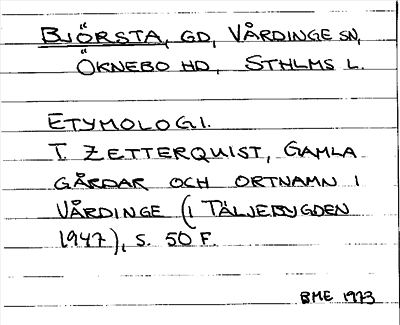 BJÖRSTA, GD, VÅRDINGE SN,
ÖKNEBO HD, STHLMS L.
ETYMOLOGI.
T. ZETTERQUIST, GAMLA
GÅRDAR OCH ORTNAMN I
VÅRDINGE (I TÄLJEBYGDEN
1947), S. 50 F.
BME 1973